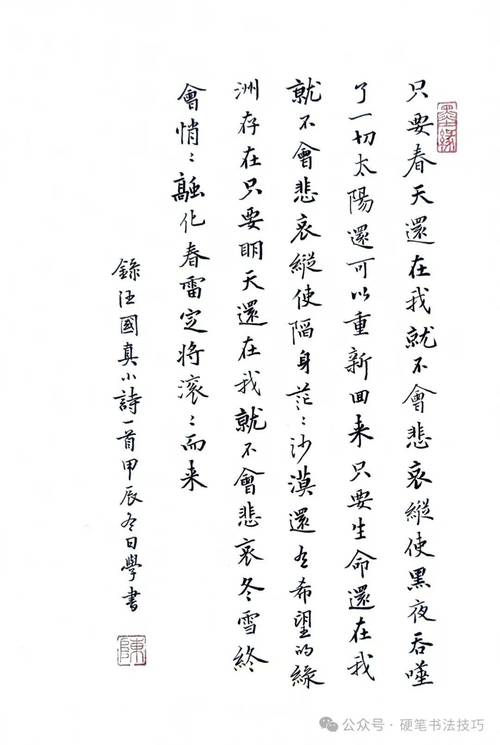 墨緣
只要春天還在我就不會悲哀縱使黑夜吞噬
了一切太陽還可以重新回来只要生命還在我
就不會悲哀縱使陷身茫〻沙漠還有希望的綠
洲存在只要明天還在我就不會悲哀冬雪終
會悄〻融化春雷定將滚〻而来
錄汪國真小詩一首甲辰冬日學書
陳
公众号·硬笔书法技巧